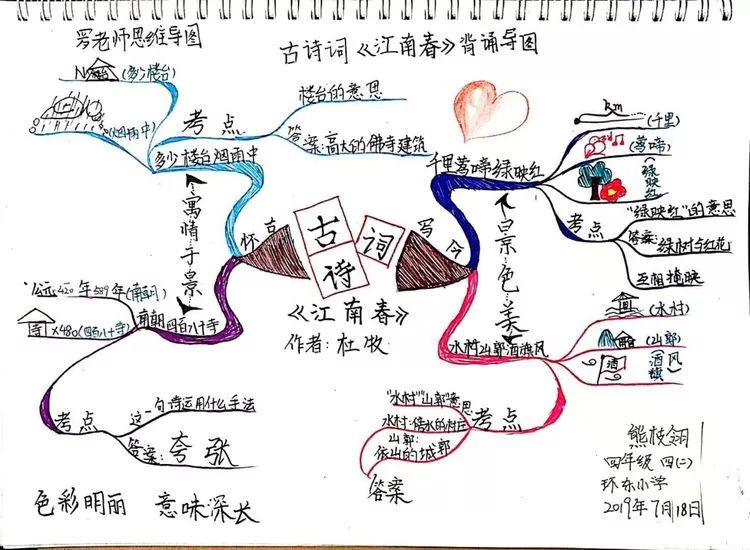 罗老师思维导图
古诗词《江南春》背诵导图
古诗词
《江南春》
作者:杜牧
写今
千里莺啼绿映红
km
(千里)
(莺啼)
(绿映红)
考点
"绿映红"的意思
答案:绿树与红花
互相掩映
景色美
水村山郭酒旗风
(水村)
(山郭)
酒
(酒旗风)
考点
"水村"山郭意思
水村:傍水的村庄
山郭:
依山的城郭
答案
怀古
南朝四百八十寺
公元420年589年(南朝)
寺×480(四百八十寺)
考点
这一句诗运用什么手法
答案:夸张
寓情于景
多少楼台烟雨中
N
(多少楼台)
(烟雨中)
考点
楼台的意思
答案:高大的佛寺建筑
色彩明丽 意味深长
熊枝翎
四年级 四(二)
环东小学
2019年7月18日